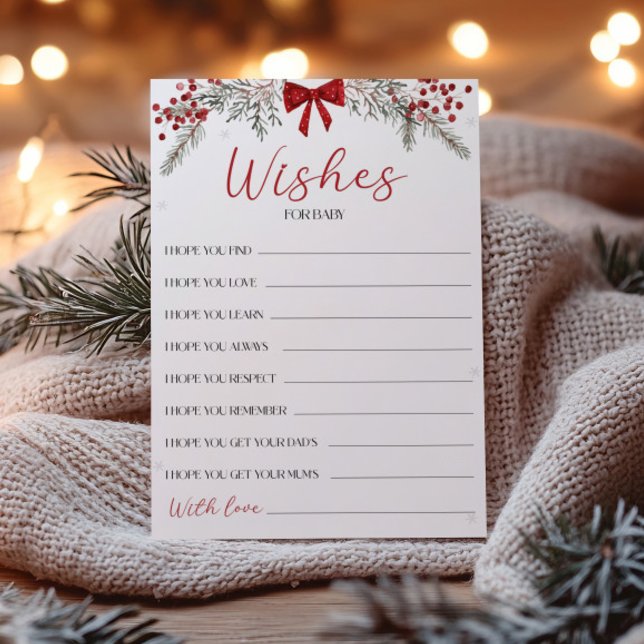 Wishes
FOR BABY
I HOPE YOU FIND
I HOPE YOU LOVE
I HOPE YOU LEARN
I HOPE YOU ALWAYS
I HOPE YOU RESPECT
I HOPE YOU REMEMBER
I HOPE YOU GET YOUR DAD'S
I HOPE YOU GET YOUR MUM'S
With love